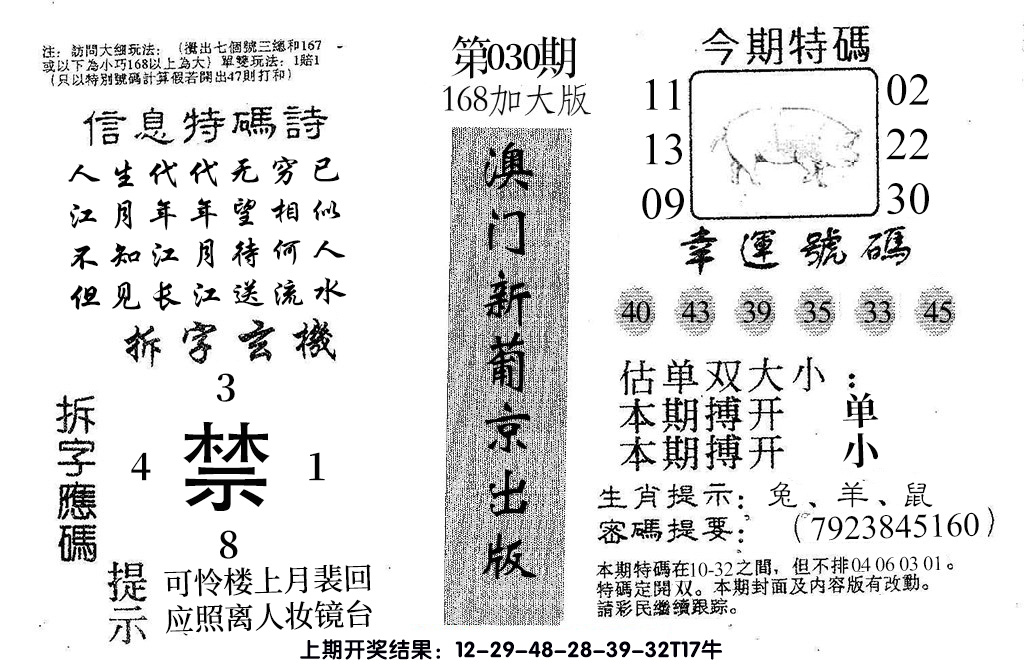 注：訪問大细玩法：（攪出七個號三總和167
或以下為小巧168以上為大）單雙玩法：1賠1
（只以特別號碼計算假若開出47則打和）
信息特碼詩
人生代代无穷已
江月年年望相似
不知江月待何人
但见长江送流水
拆字玄機
3
拆字應碼
4 禁 1
8
提示
可怜楼上月裴回
应照离人妆镜台
第030期
168加大版
澳门新葡京出版
今期特碼
11 02
13 22
09 30
幸運號碼
40 43 39 35 33 45
估单双大小：
本期搏开 单
本期搏开 小
生肖提示：兔、羊、鼠
密碼提要：（7923845160）
本期特碼在10-32之間，但不排04 06 03 01。
特碼定開双。本期封面及内容版有改動。
請彩民繼續跟踪。
上期开奖结果：12-29-48-28-39-32T17牛